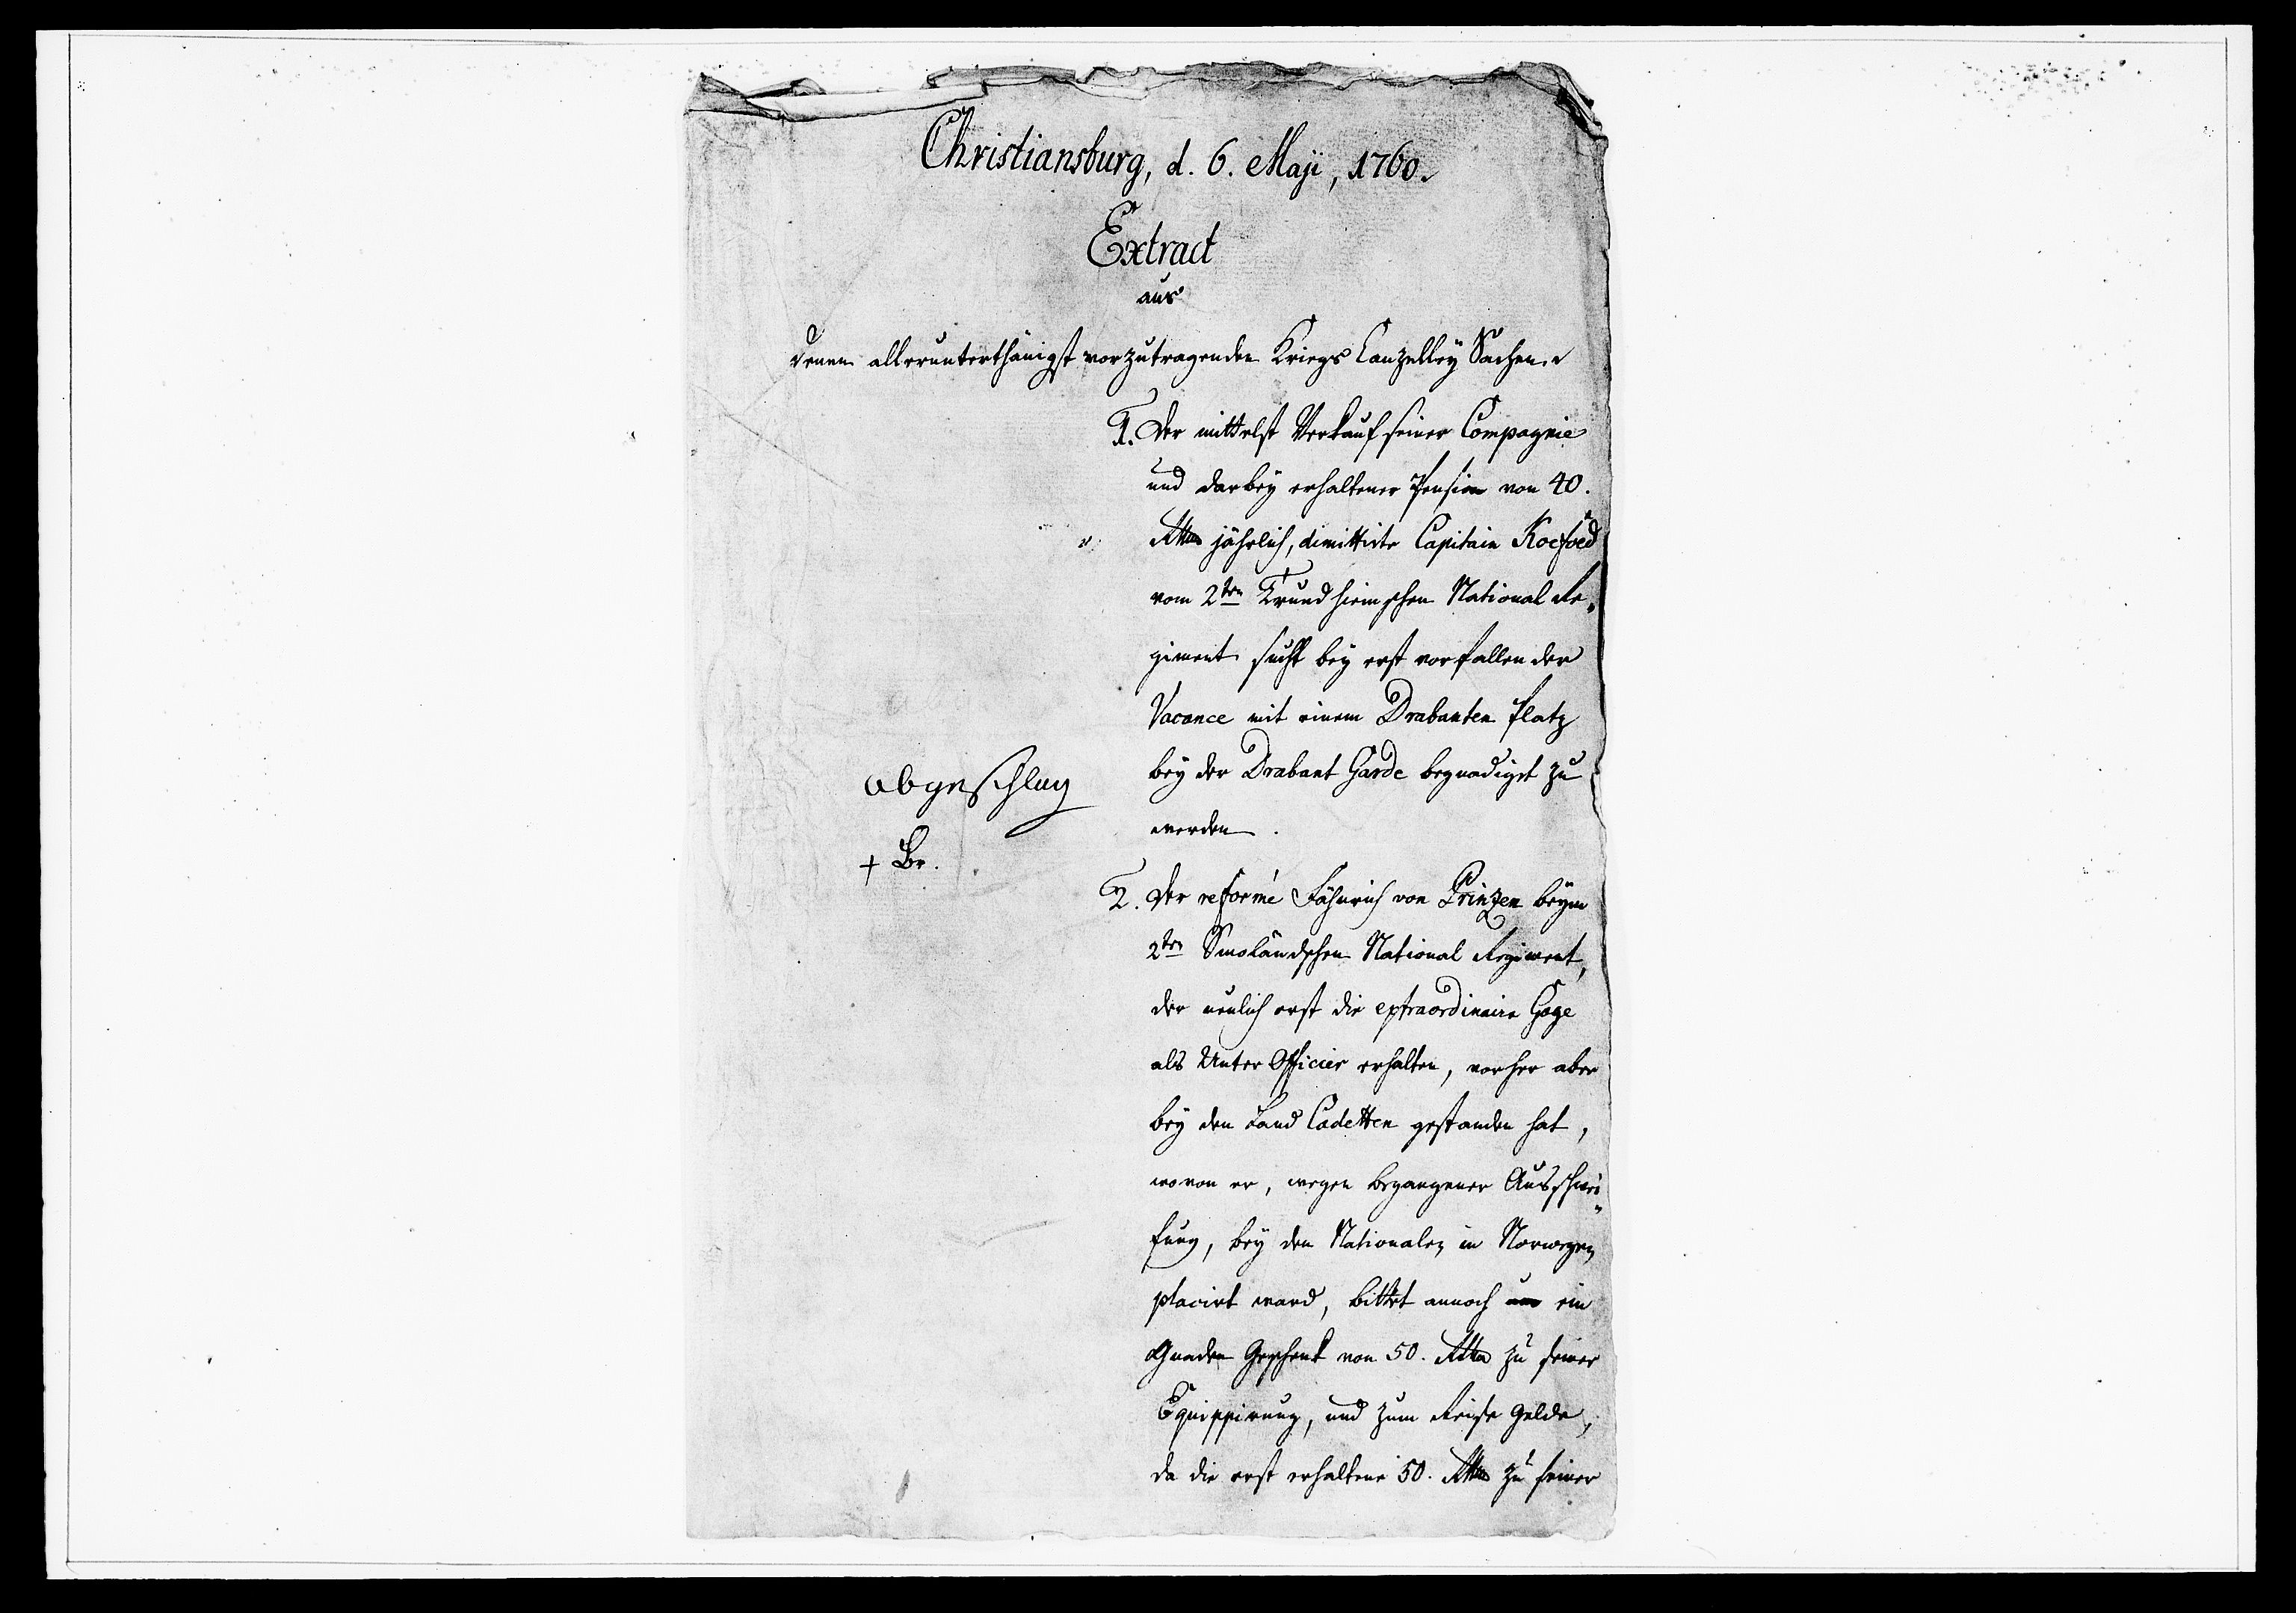 Christiansburg, d. 6. Maji, 1760.
Extract
aus
denen allerunterthänigst vorzutragenden Kriegs Canzelley Sachen.
1. Der mittelst Verkauf seiner Compagnie
und darbey erhaltener Pension von 40.
Rtha jährlich, dimittirte Capitain Koefoed
vom 2ten Trundhiemschen National Re„
giment sucht bey erst vorfallender
Vacance mit einem Drabanten Platz
bey der Drabant Garde begnadiget zu
werden.
abgeschlag
+ Br.
2. Der reformé Fähnrich von Prinzen beym
2ten Smoländschen National Regiment,
der neulich erst die extraordinaire Gage
als Unter Officier erhalten, vorher aber
bey den Land Cadetten gestanden hat,
wovon er, wegen begangener Ausschwei„
fung, bey den Nationalen in Norwegen
placirt ward, bittet annoch um ein
Gnaden Geschenk von 50. Rtha zu seiner
Equippirung, und zum Reise Gelde,
da die erst erhaltene 50. Rtha zu seiner